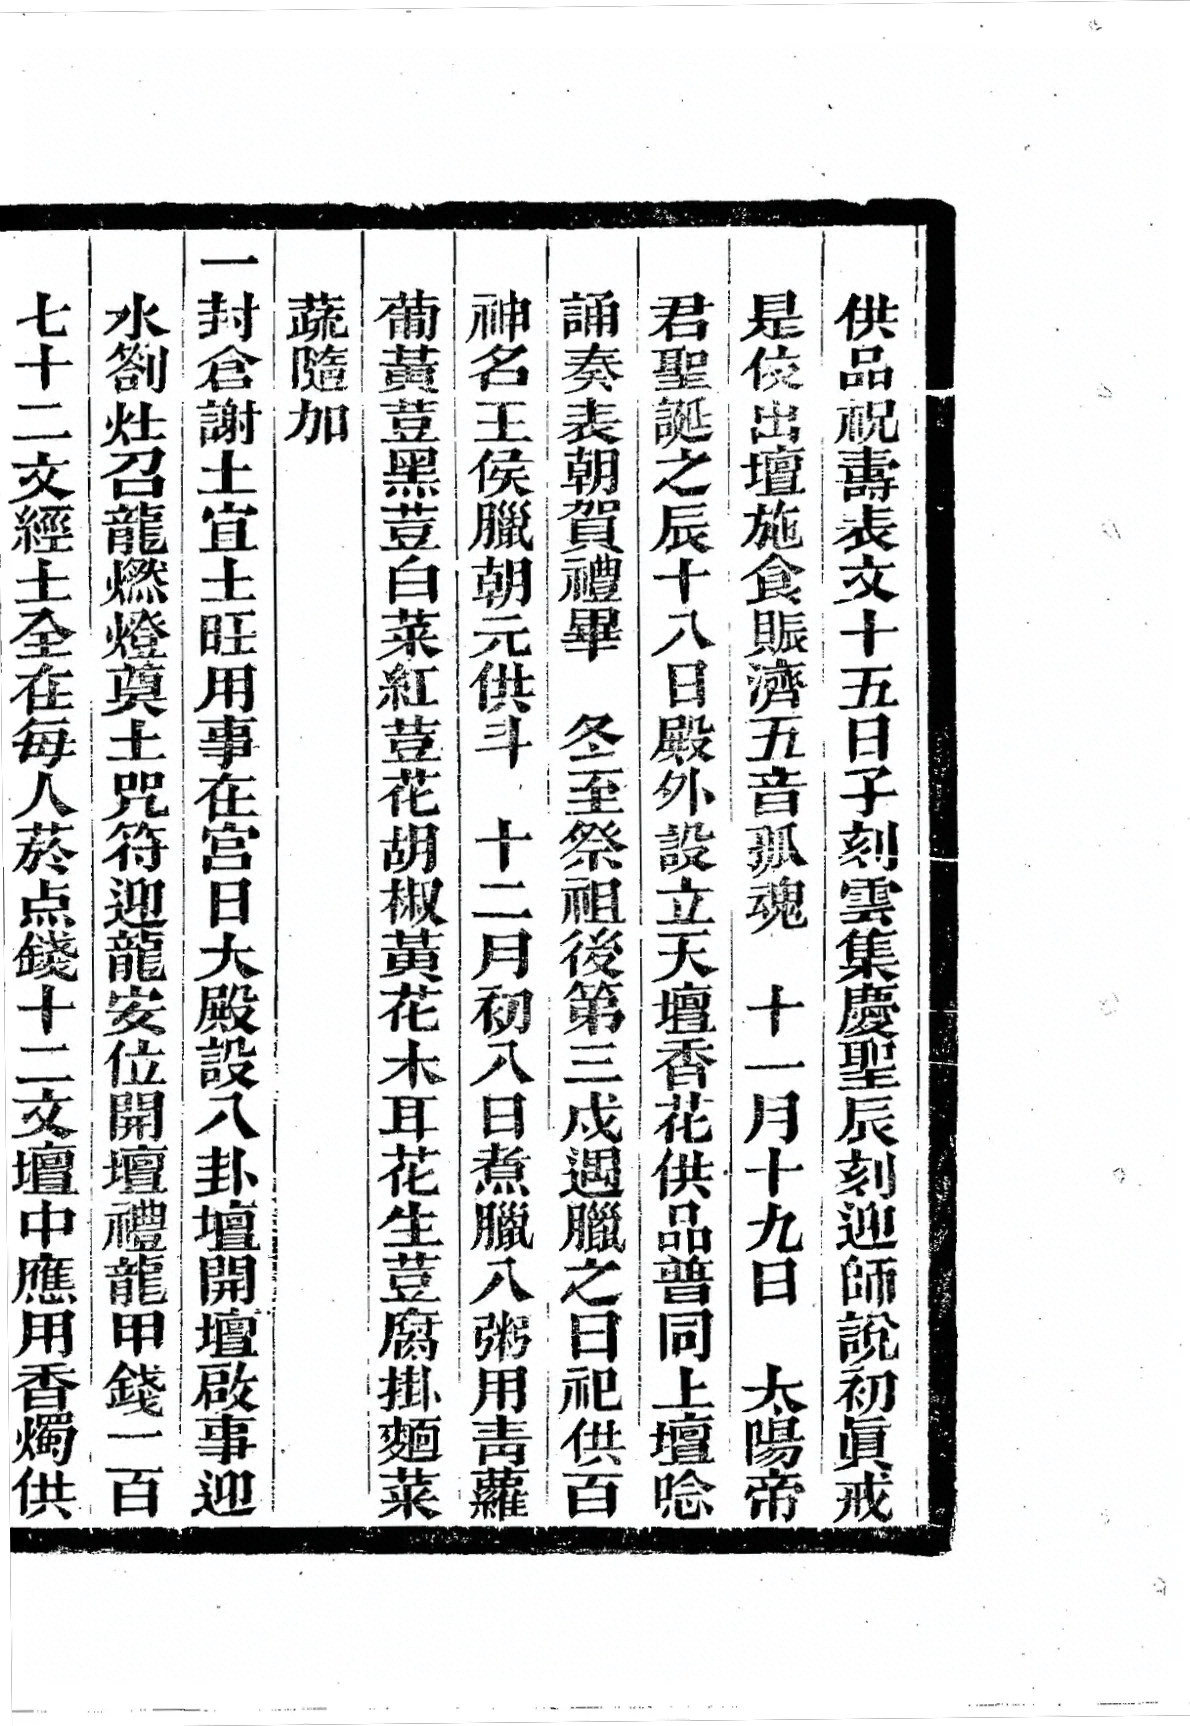 供品祝壽表文十五日子刻雲集慶聖辰刻迎師說初眞戒
是夜出壇施食賑濟五音孤魂　十一月十九日　太陽帝
君聖誕之辰十八日殿外設立天壇香花供品普同上壇唸
誦奏表朝賀禮畢　冬至祭祖後第三戍遇臘之日祀供百
神名王侯臘朝元供斗　十二月初八日煮臘八粥用靑蘿
葡黃荳黑荳白菜紅荳花胡椒黃花木耳花生荳腐掛麵菜
蔬隨加
一封倉謝土宜土旺用事在宮日大殿設八卦壇開壇啟事迎
水劄灶召龍燃燈奠土咒符迎龍安位開壇禮龍甲錢一百
七十二文經土全在每人菸点錢十二文壇中應用香燭供